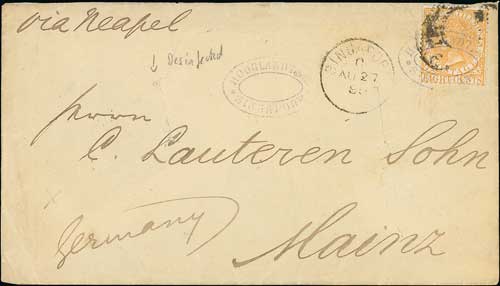 via Neapel
↓ Desinfected
HOOGLANDT &
SINGAPORE
SINGAPORE
C
AU 27
EIGHT CENTS
Herrn
C. Lauteren Sohn
Mainz
Germany